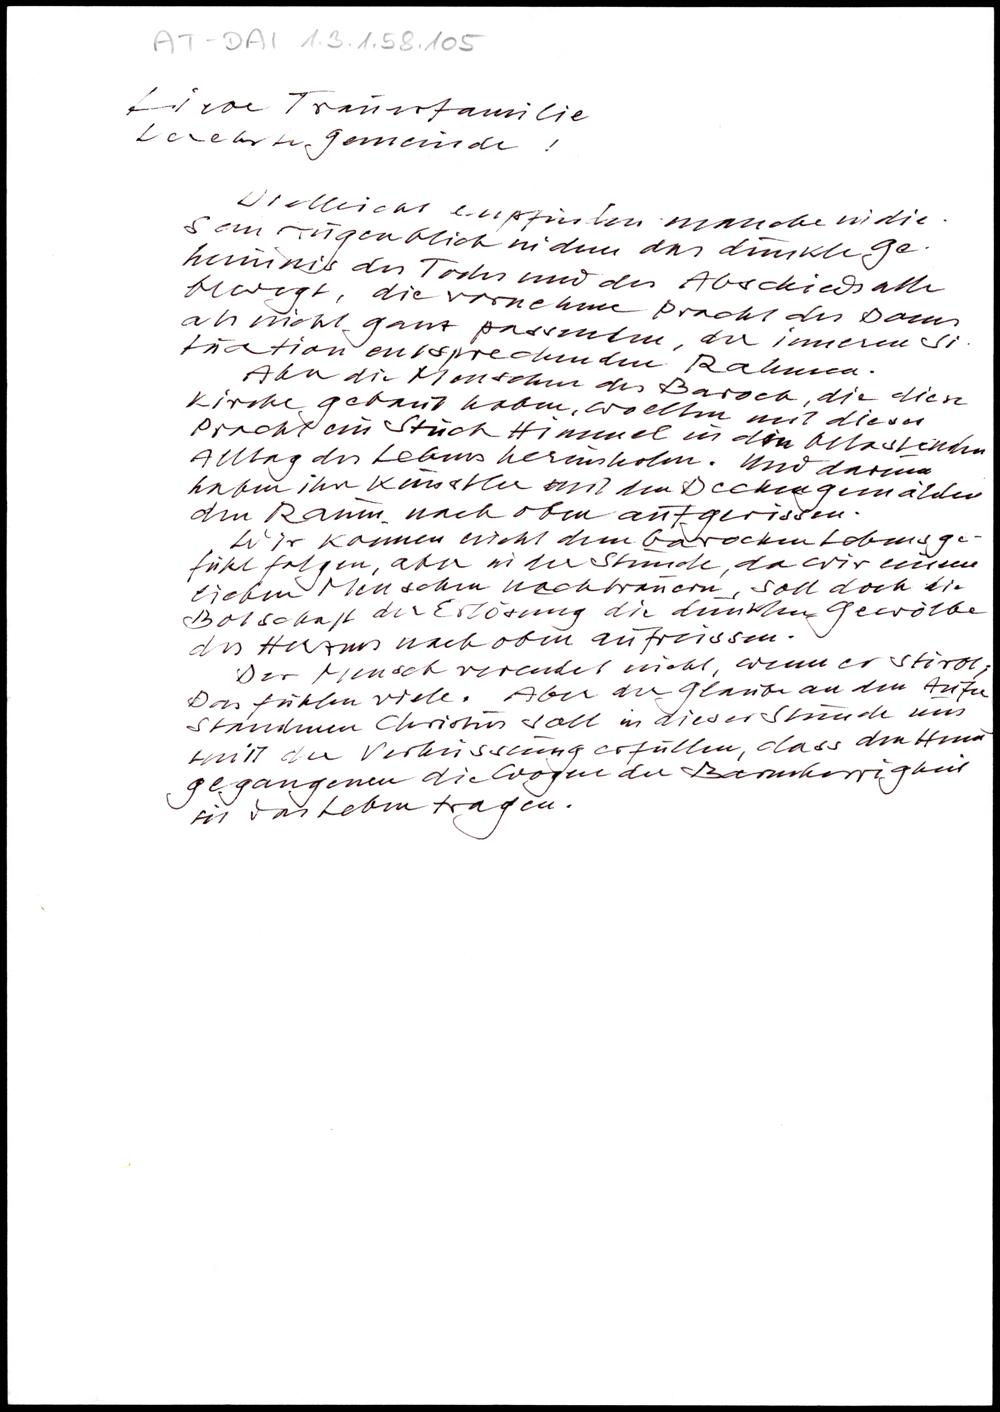 AT-DAI 1.3.1.58.105
Liebe Trauerfamilie
Verehrte Gemeinde !
Vielleicht empfinden manche in die-
sem Augenblick in dem das dunkle Ge-
heimnis des Todes und des Abschieds alle
bewegt, die vornehme Pracht des Doms
als nicht ganz passenden, der inneren Si-
tuation entsprechenden Rahmen.
Aber die Menschen des Barock, die diese
Kirche gebaut haben, wollten mit dieser
Pracht ein Stück Himmel in den belastenden
Alltag des Lebens hereinholen. Und darum
haben ihre Künstler mit den Deckengemälden
den Raum nach oben aufgerissen.
Wir können nicht dem barocken Lebensge-
fühl folgen, aber in der Stunde, da wir einem
lieben Menschen nachtrauern, soll doch die
Botschaft der Erlösung die dunklen Gewölbe
des Herzens nach oben aufreissen.
Der Mensch verendet nicht, wenn er stirbt,
Das fühlen viele. Aber der Glaube an den Aufer
standenen Christus soll in dieser Stunde uns
mit der Verheissung erfüllen, dass den Heim
gegangenen die Woge der Barmherzigkeit
in das Leben tragen.